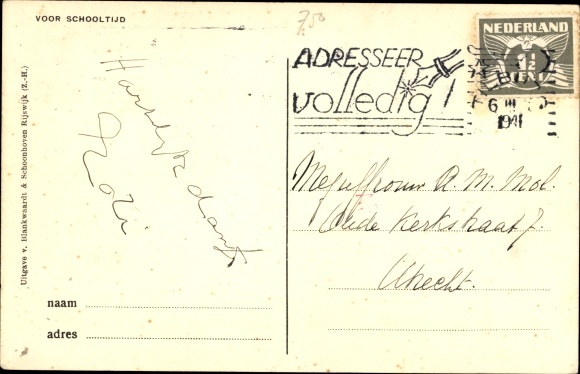 VOOR SCHOOLTIJD
7.50
ADRESSEER
volledig!
NEDERLAND
1½
6 III
1941
Hartelijk dank
Uitgave v. Blankwaardt & Schoonhoven Rijswijk (Z.-H.)
Mejuffrouw A. M. Mol.
Oude Kerkstraat 7.
Utrecht.
naam
adres